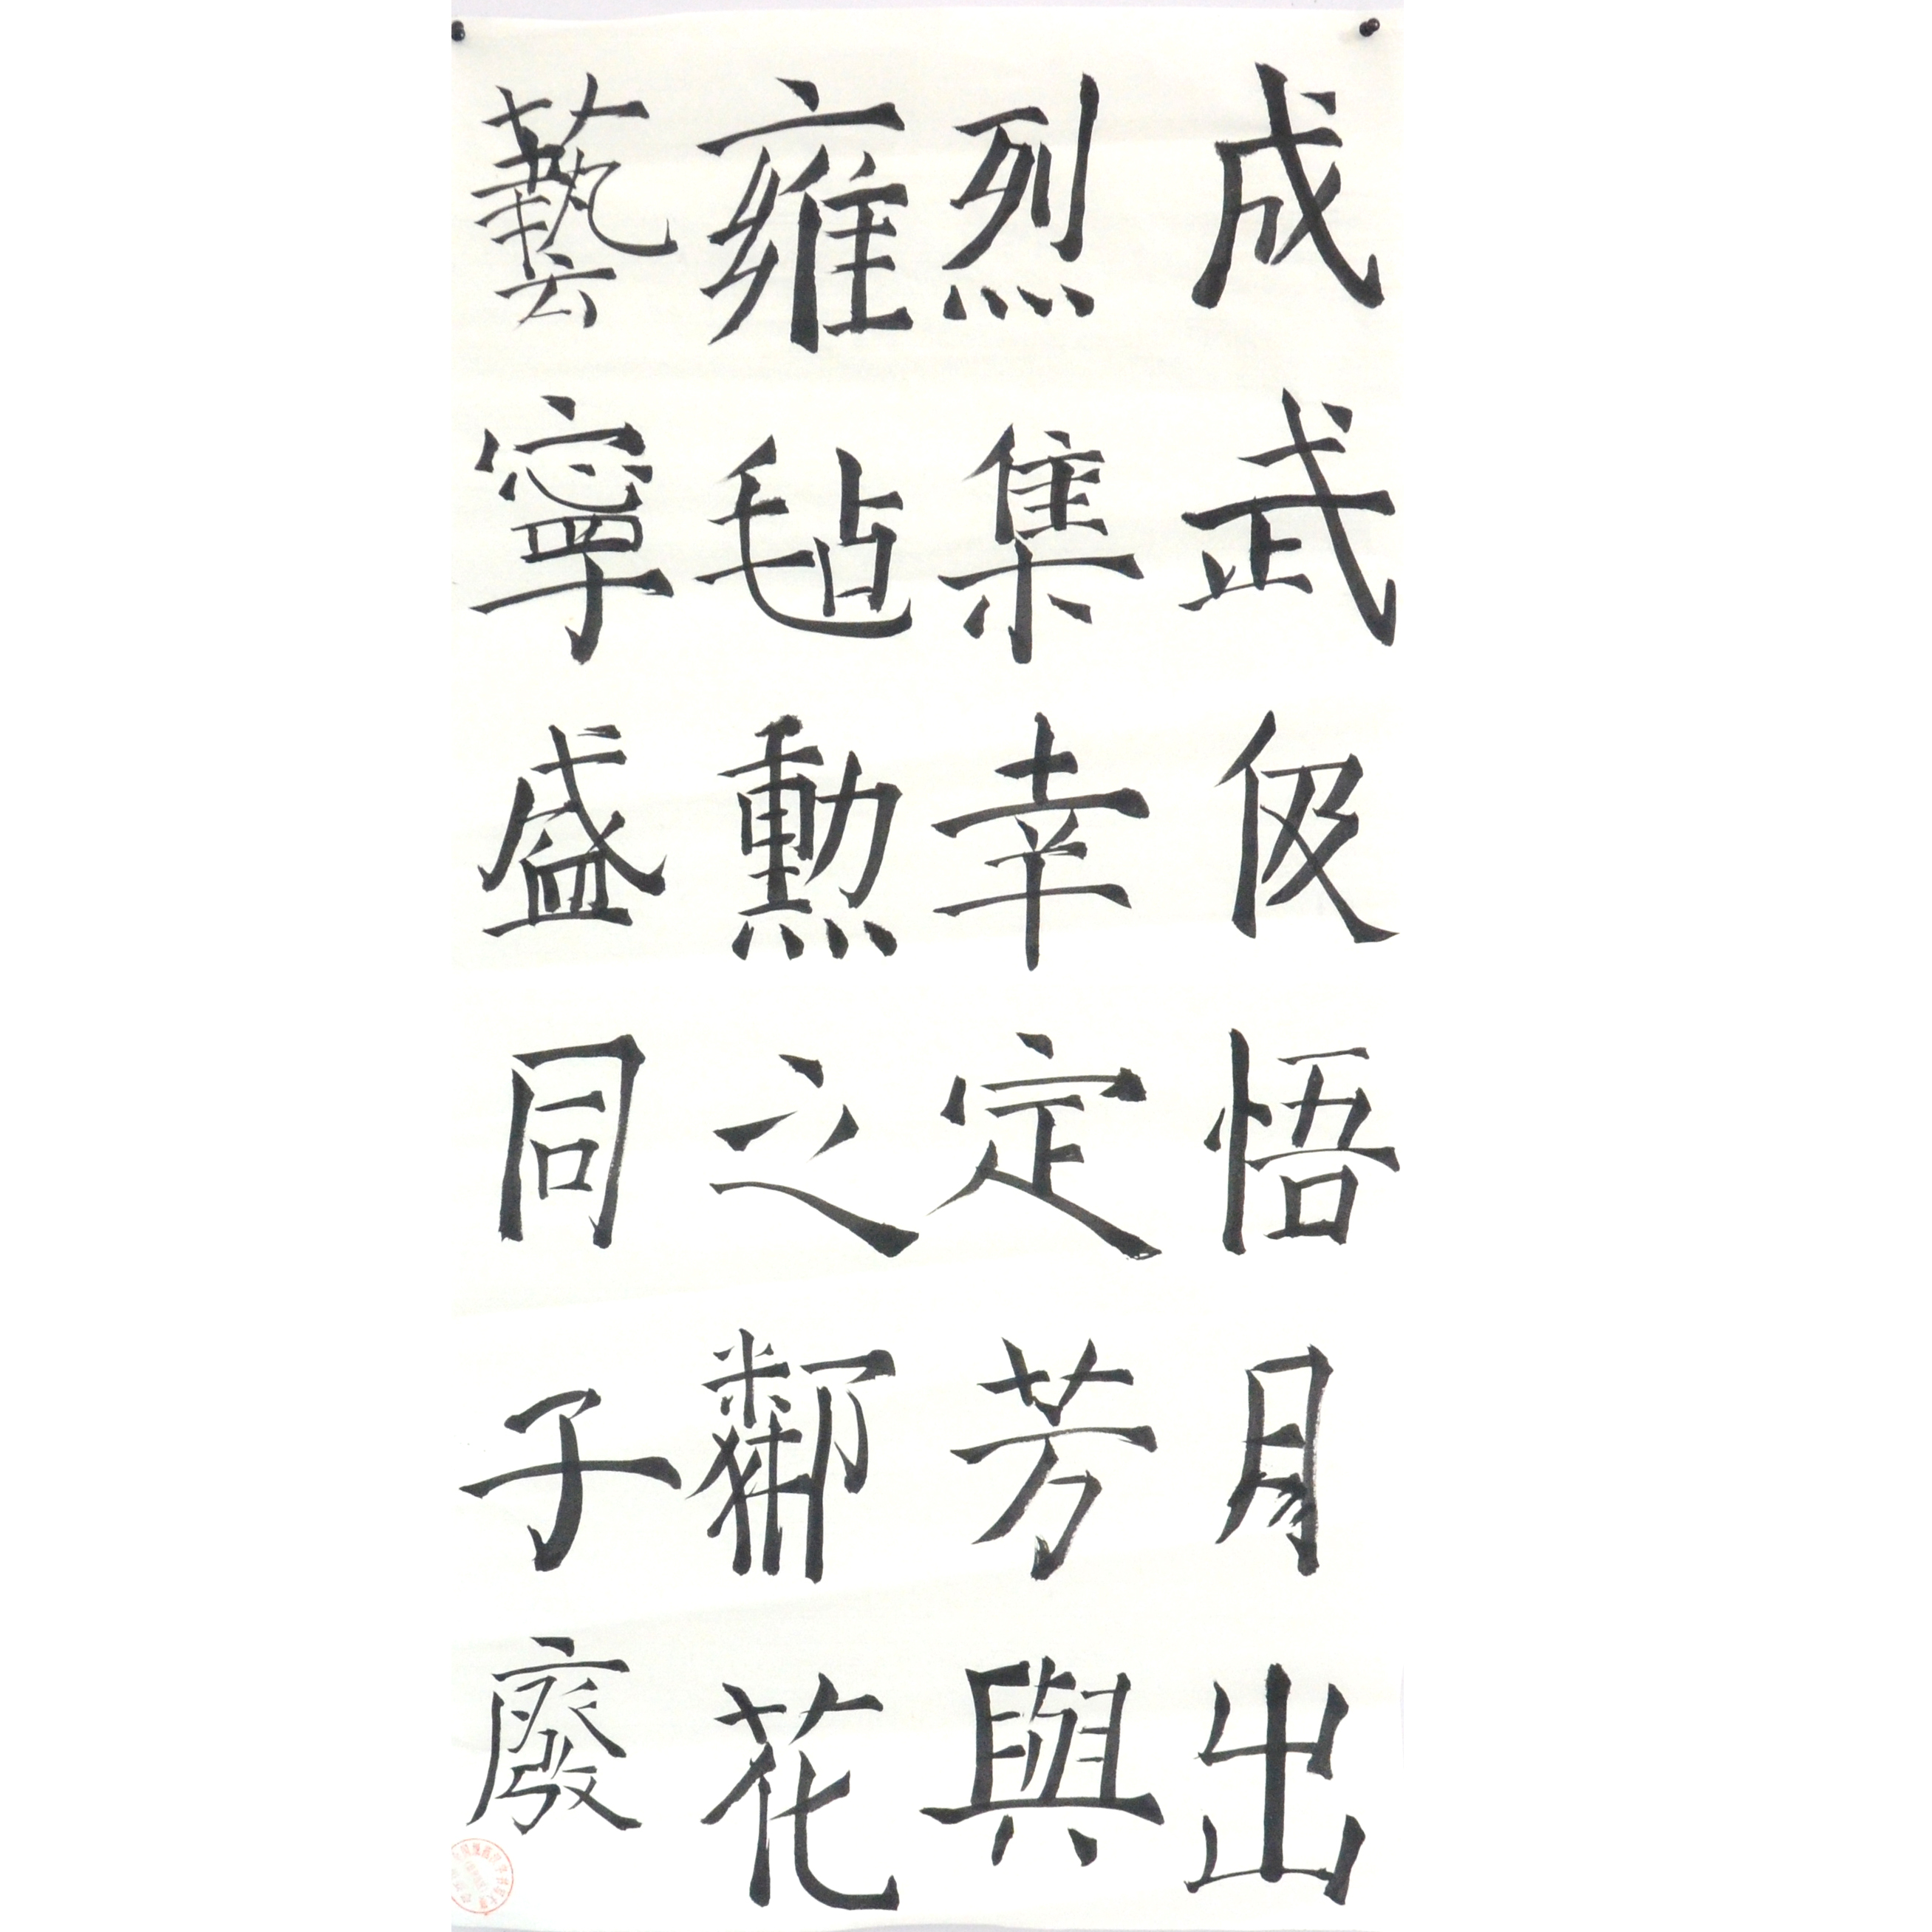 成武伋悟月出
烈集幸定芳與
雍毡勳之鄰花
藝寧盛同子廢